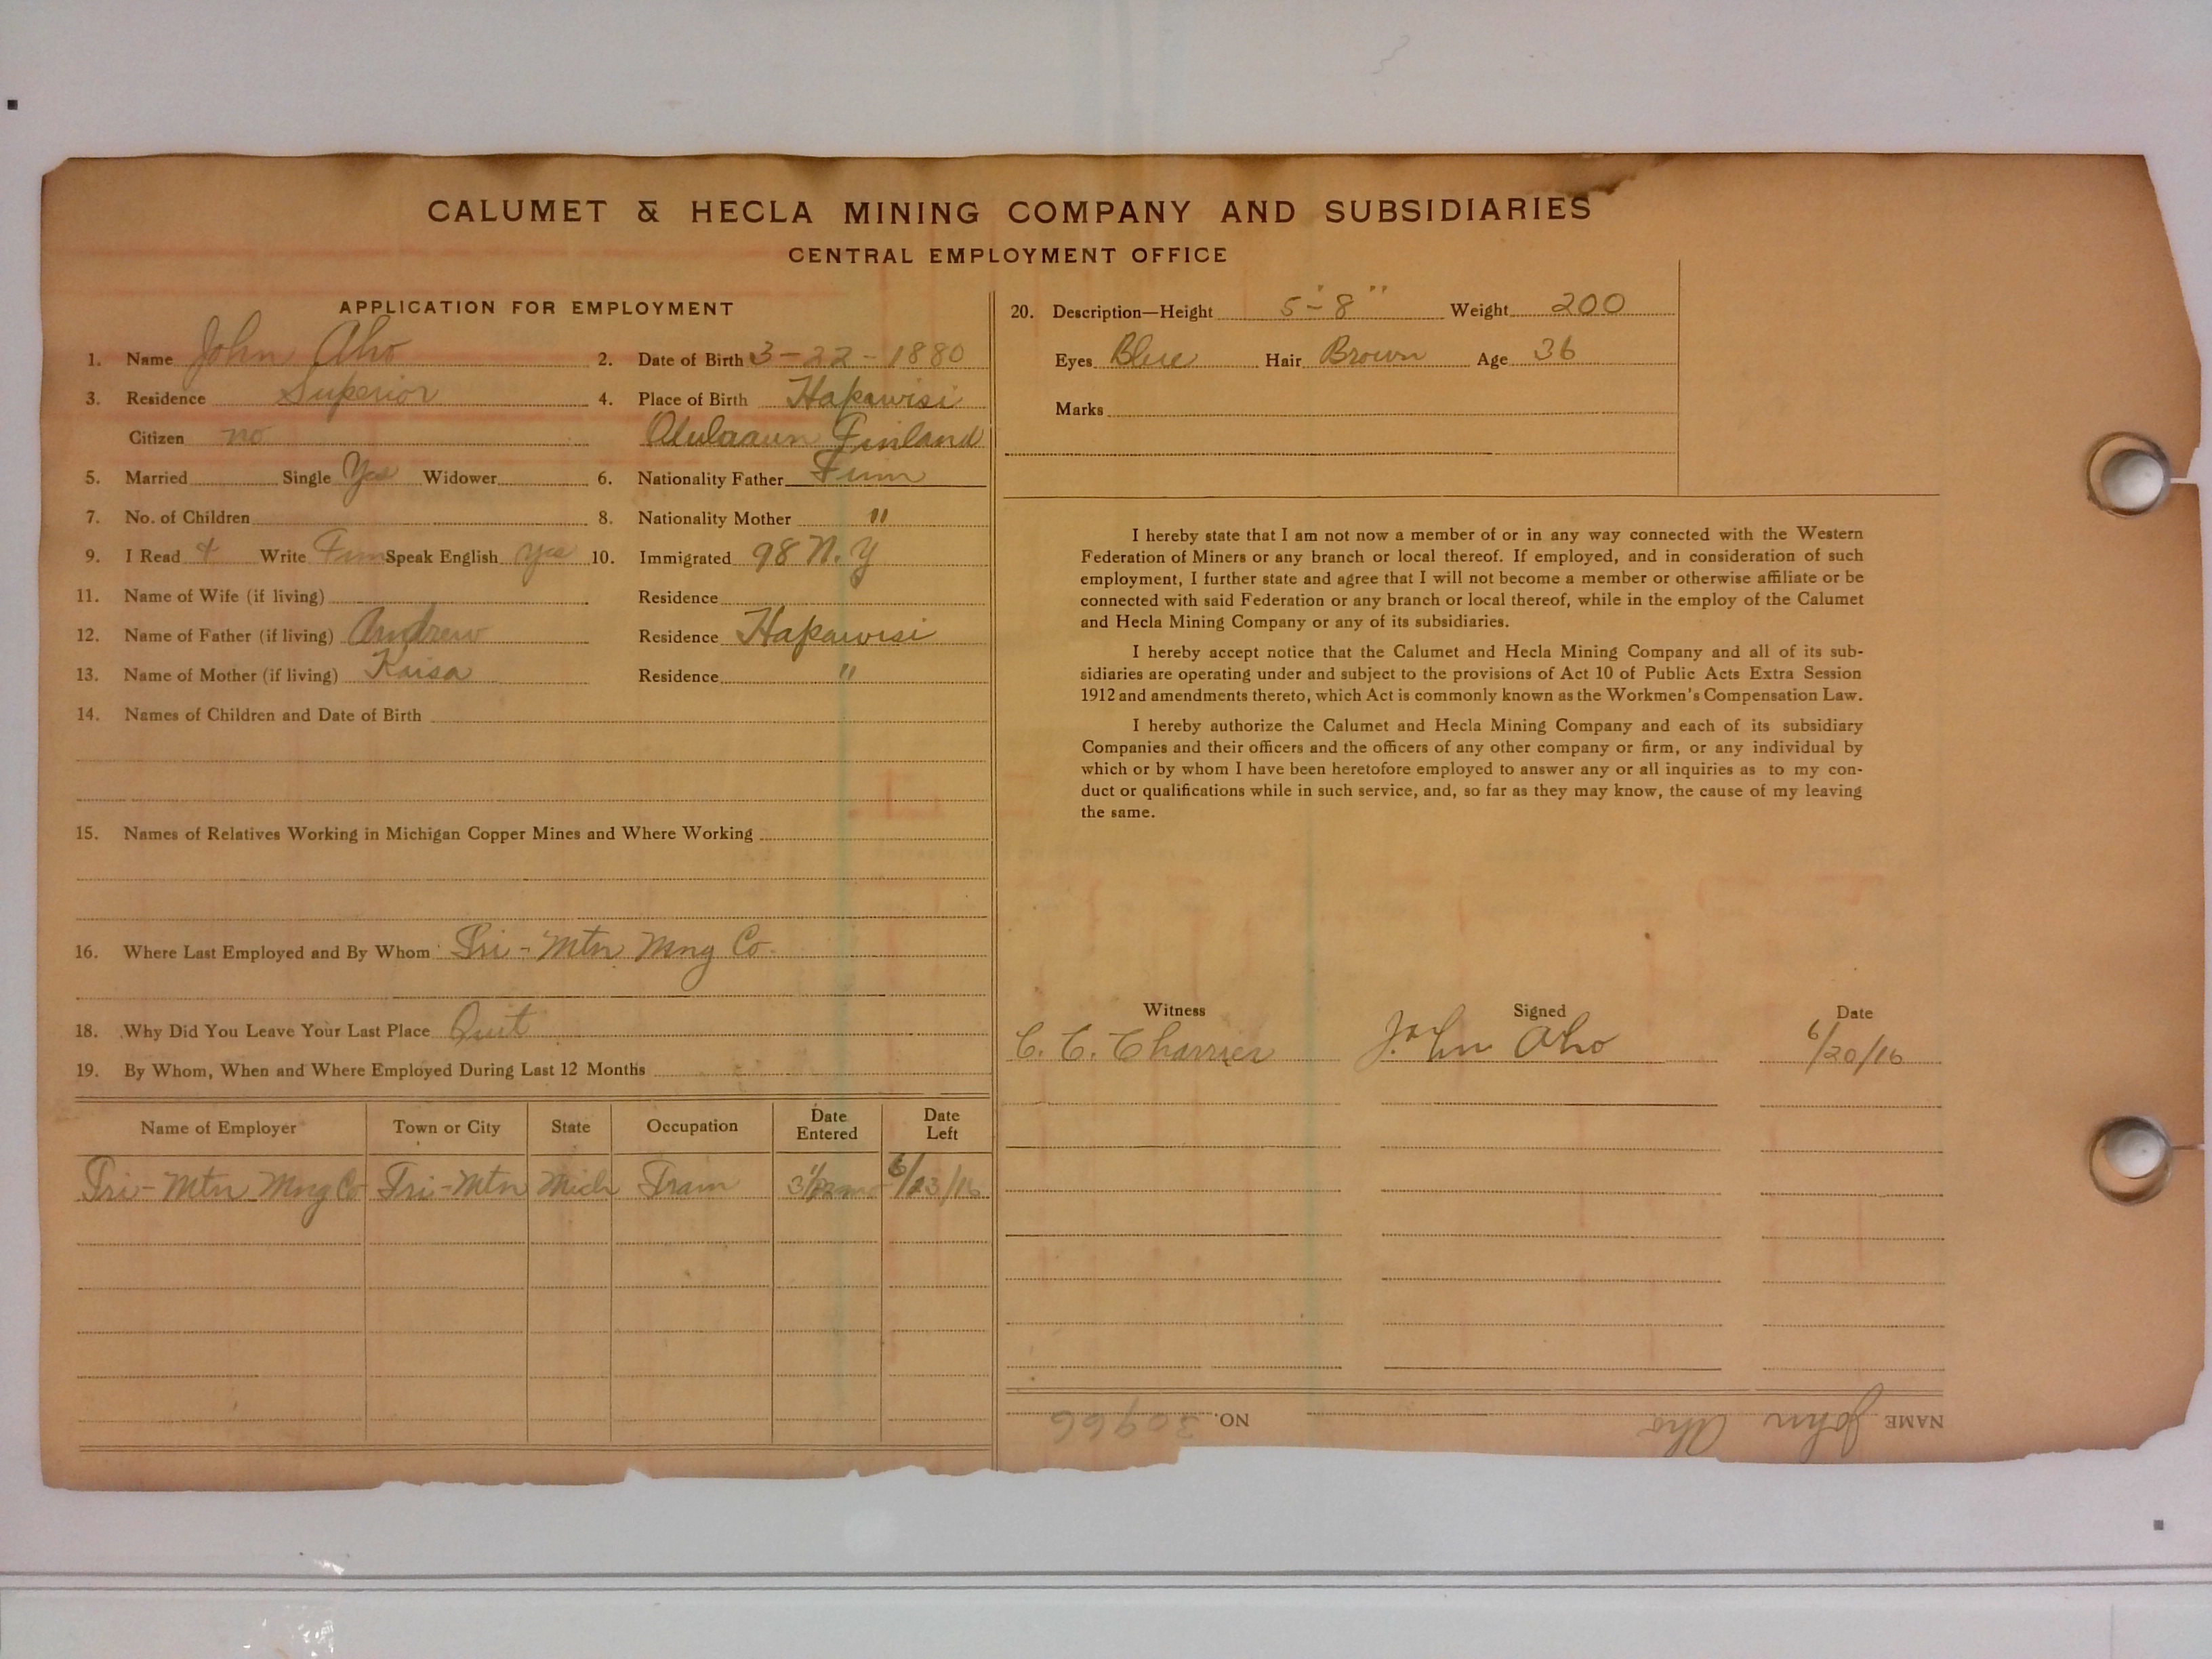 CALUMET & HECLA MINING COMPANY AND SUBSIDIARIES
CENTRAL EMPLOYMENT OFFICE
APPLICATION FOR EMPLOYMENT
1. Name John Aho 2. Date of Birth 3-22-1880
3. Residence Superior 4. Place of Birth Hapawisi
Citizen no Finland
5. Married Single Yes Widower 6. Nationality Father Finn
7. No. of Children 8. Nationality Mother "
9. I Read & Write Finn Speak English yes 10. Immigrated 98 N.Y
11. Name of Wife (if living) Residence
12. Name of Father (if living) Andrew Residence Hapawisi
13. Name of Mother (if living) Kaisa Residence "
14. Names of Children and Date of Birth
15. Names of Relatives Working in Michigan Copper Mines and Where Working
16. Where Last Employed and By Whom Tri-Mtn Mng Co.
18. Why Did You Leave Your Last Place Quit
19. By Whom, When and Where Employed During Last 12 Months
Name of Employer Town or City State Occupation Date Entered Date Left
Tri-Mtn Mng Co Tri-Mtn Mich Tram 6/23/16
20. Description—Height 5'-8" Weight 200
Eyes Blue Hair Brown Age 36
Marks
I hereby state that I am not now a member of or in any way connected with the Western
Federation of Miners or any branch or local thereof. If employed, and in consideration of such
employment, I further state and agree that I will not become a member or otherwise affiliate or be
connected with said Federation or any branch or local thereof, while in the employ of the Calumet
and Hecla Mining Company or any of its subsidiaries.
I hereby accept notice that the Calumet and Hecla Mining Company and all of its sub-
sidiaries are operating under and subject to the provisions of Act 10 of Public Acts Extra Session
1912 and amendments thereto, which Act is commonly known as the Workmen's Compensation Law.
I hereby authorize the Calumet and Hecla Mining Company and each of its subsidiary
Companies and their officers and the officers of any other company or firm, or any individual by
which or by whom I have been heretofore employed to answer any or all inquiries as to my con-
duct or qualifications while in such service, and, so far as they may know, the cause of my leaving
the same.
Witness Signed Date
C. C. John Aho 6/20/16
NAME John Aho NO. 30966